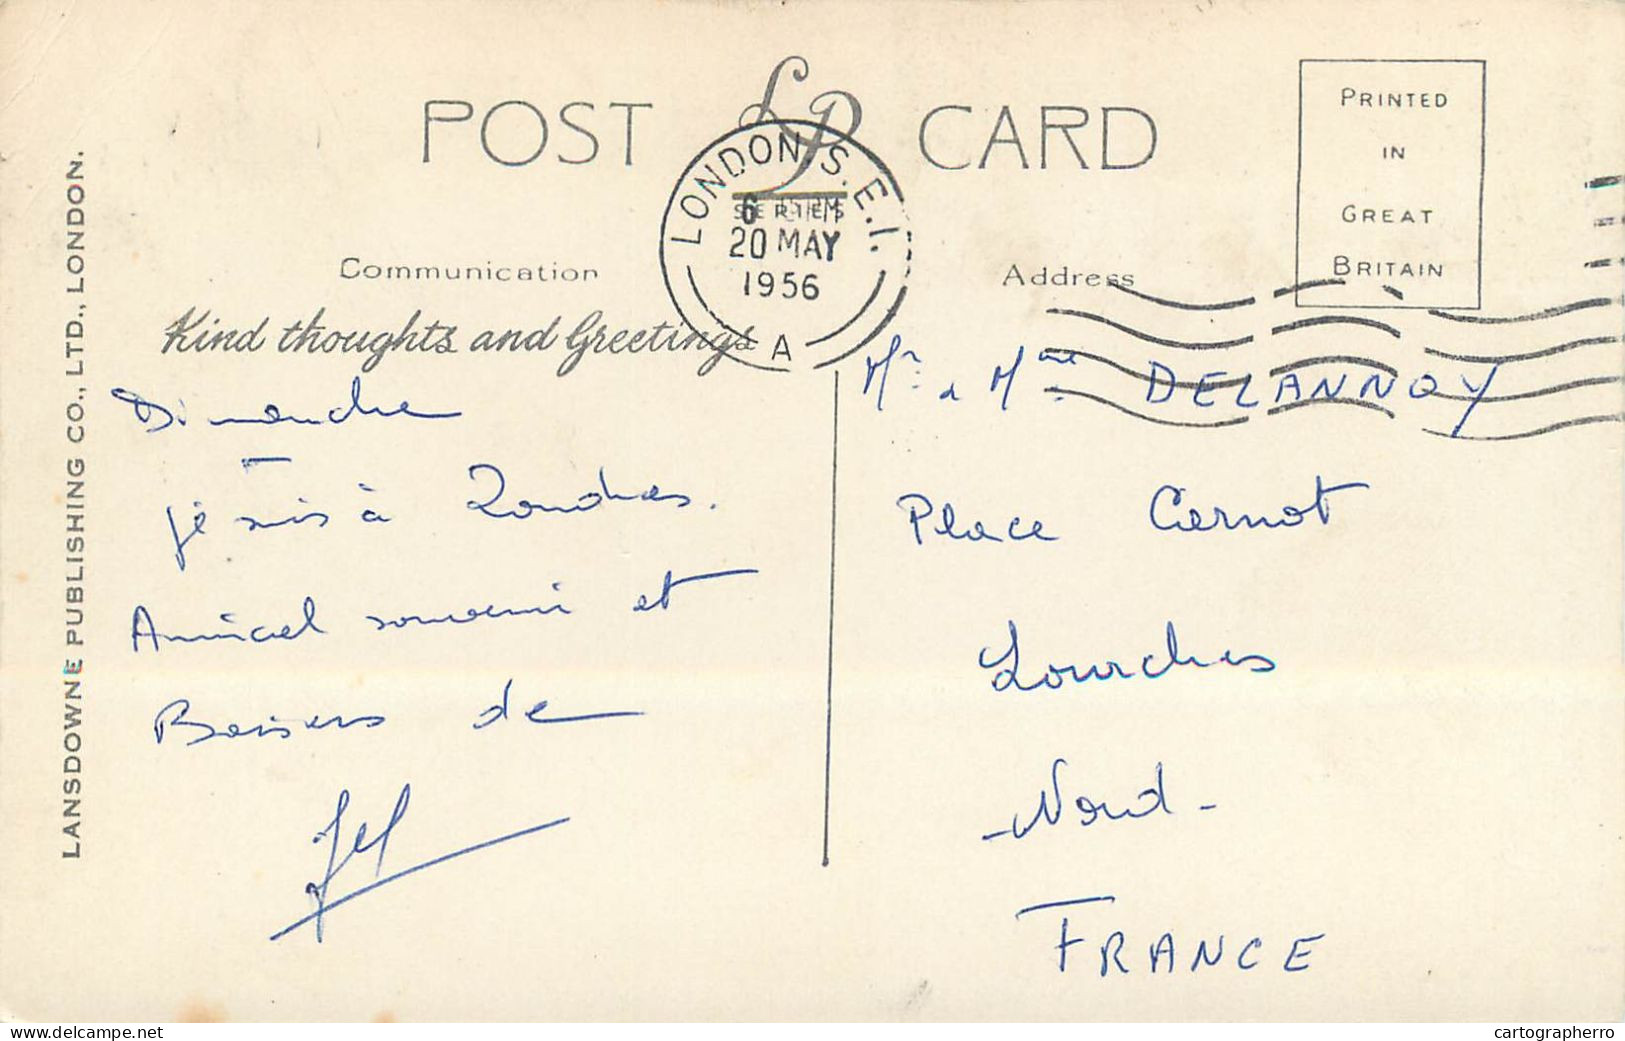 POST LP CARD
SERIES
PRINTED
IN
GREAT
BRITAIN
LONDON. S.E.1.
6 PM
20 MAY
1956
A
Communication
Address
Kind thoughts and Greetings
LANSDOWNE PUBLISHING CO., LTD., LONDON.
Dimanche
je suis à Londres.
Amical souvenir et
Baisers de
Mr & Mme DELANNOY
Place Carnot
Lourches
- Nord -
FRANCE
www.delcampe.net
cartographerro